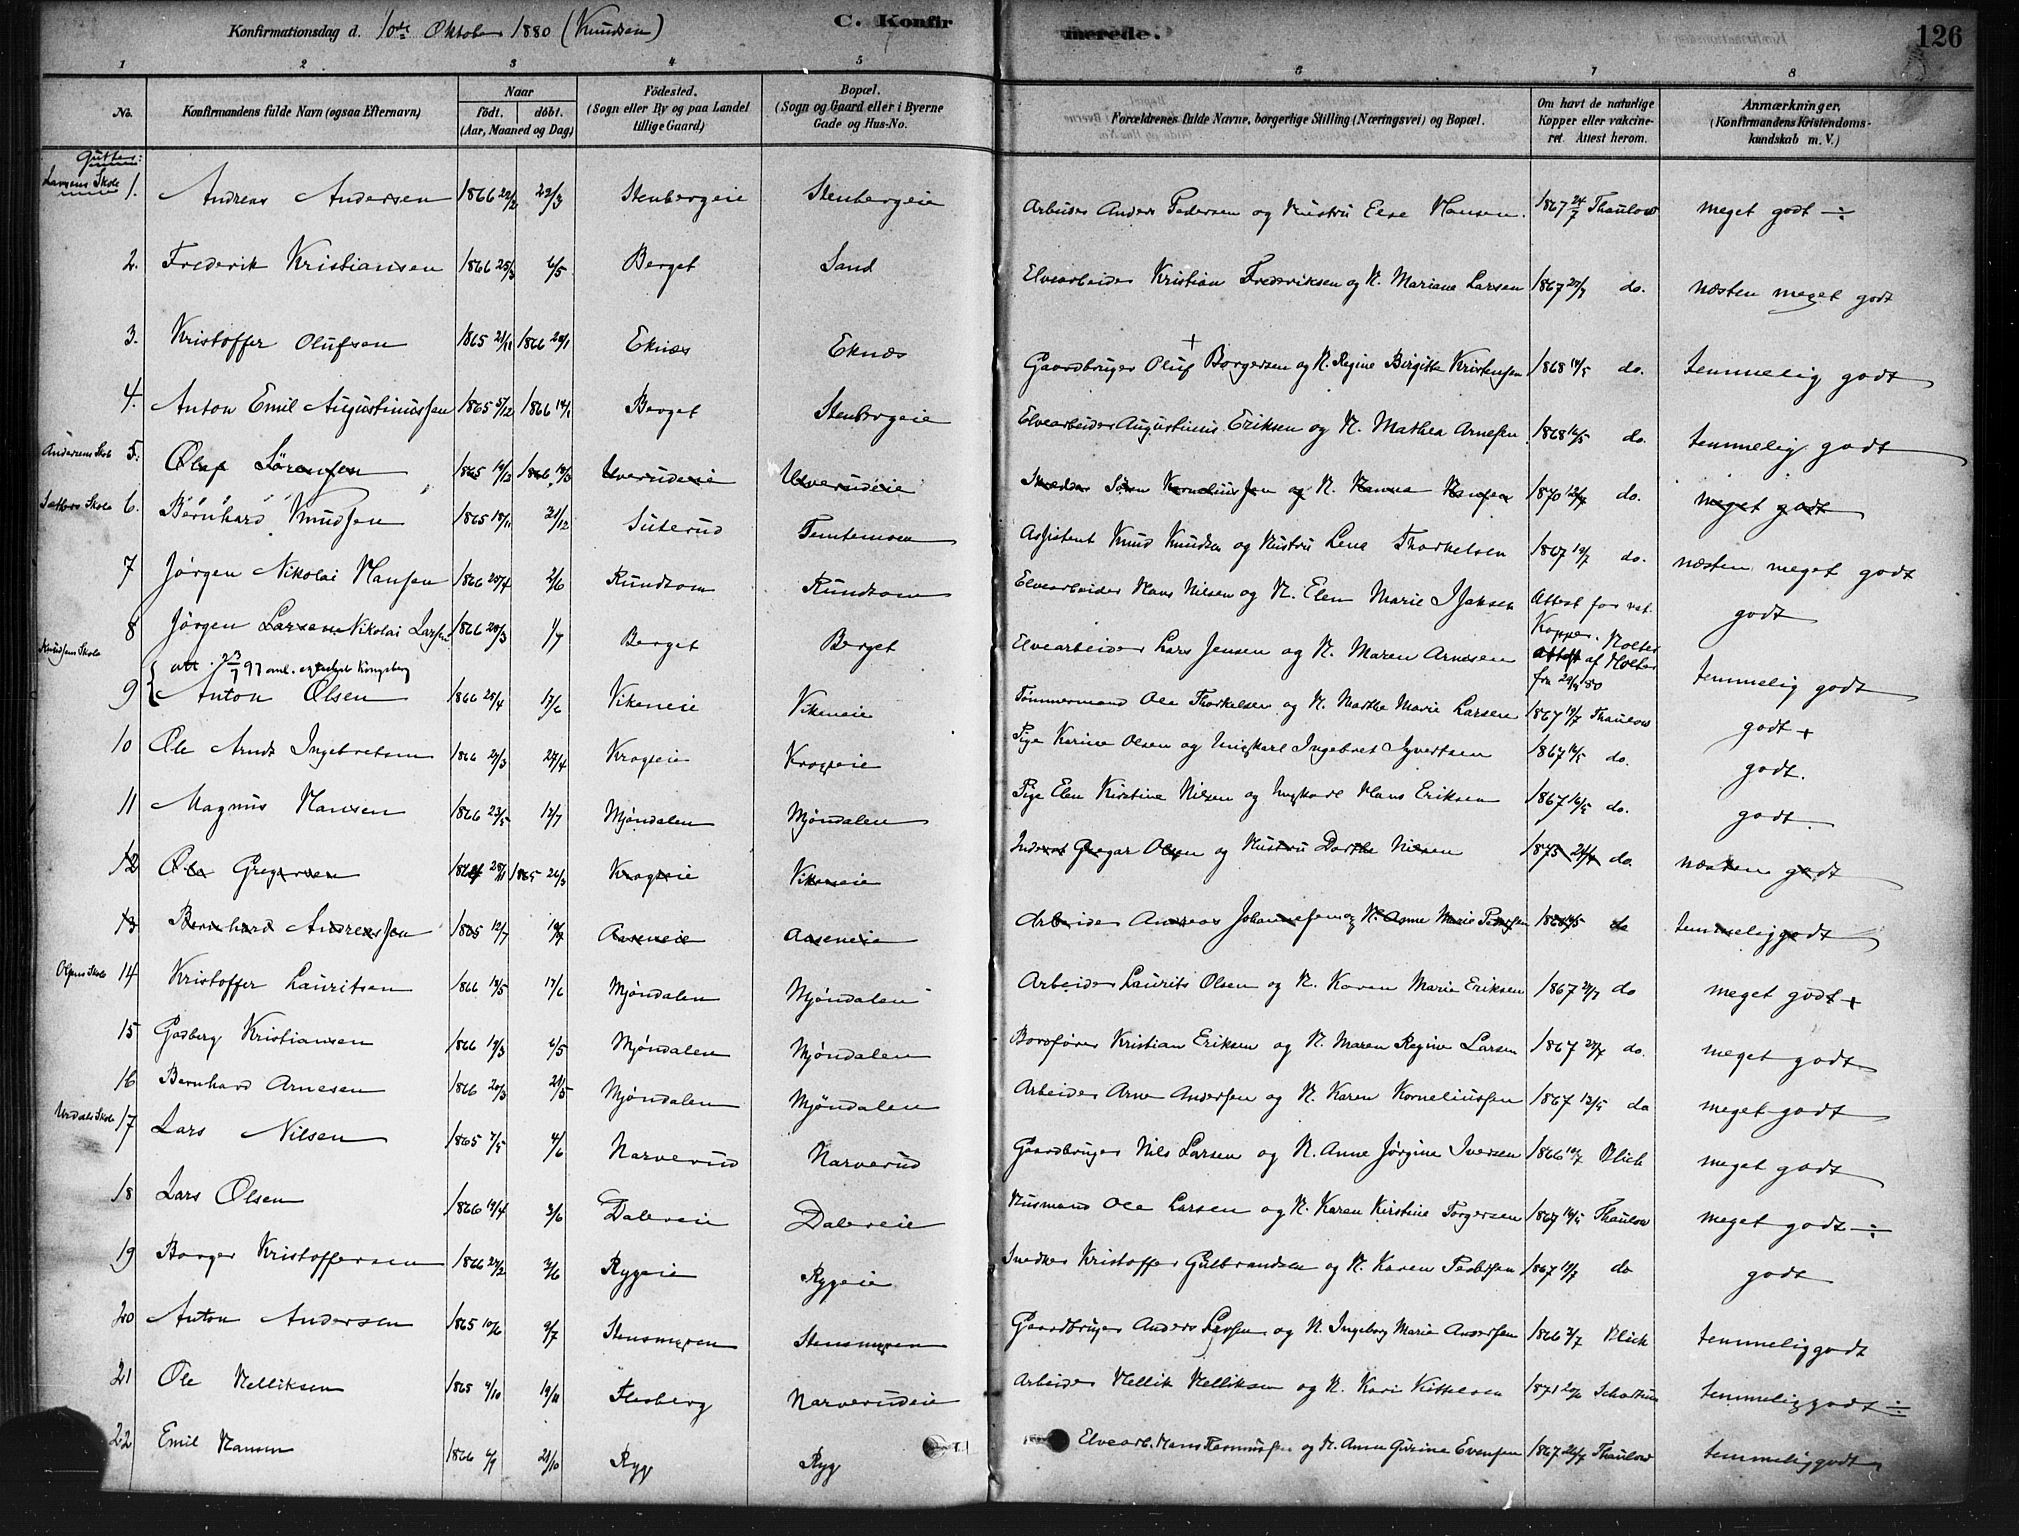 Konfirmationsdag d. 10de Oktober 1880 (Knudsen) C. Konfirmerede. 126
1 2 3 4 5 6 7 8
No. Konfirmandens fulde Navn (ogsaa Efternavn) Naar født. døbt. (Aar, Maaned og Dag) Fødested. (Sogn eller By og paa Landet tillige Gaard) Bopæl. (Sogn og Gaard eller i Byerne Gade og Hus-No. Forældrenes fulde Navne, borgerlige Stilling (Næringsvei) og Bopæl. Om havt de naturlige Kopper eller vakcineret. Attest herom. Anmærkninger, (Konfirmandens Kristendomskundskab m. V.)
Gutter:
Larsens Skole 1. Andreas Andersen 1866 22/2 22/3 Stenbergeie Stenbergeie Arbeider Anders Pedersen og Hustru Else Hansen. 1867 24/7 Thaulow meget godt ÷
2. Frederik Kristiansen 1866 25/3 6/5 Berget Sand Elvearbeider Kristian Frederiksen og H. Mariane Larsen 1867 do. næsten meget godt
3. Kristoffer Olufsen 1865 21/11 1866 28/1 Eknæs Eknæs Gaardbruger Oluf + Borgersen og H. Regine Birgitte Kristensen 1868 14/5 do. temmelig godt
4. Anton Emil Augustinussen 1865 5/12 1866 14/1 Berget Stenbergeie Elvearbeider Augustinus Eriksen og H. Mathea Arnesen 1868 14/5 do. temmelig godt
Andersens Skole 5. Olaf Sørensen 1865 19/12 1866 Ulverudeie Ulverudeie Skrædder Søren Korneliussen og H. Hanna Hansen 1870 do. meget godt
Sætters Skole 6. Bernhard Knudsen 1865 18/11 31/12 Suterud Temtemoen Assistent Knud Knudsen og Hustru Lena Thorkelsen 1867 19/7 do. næsten meget godt
7 Jørgen Nikolai Hansen 1866 28/4 2/6 Rundtom Rundtom Elvearbeider Hans Nilsen og H. Elen Marie Isaksen Attest for nat. Kopper. Holter godt
8 Jørgen Larsen Nikolai Larsen 1866 28/3 1/7 Berget Berget Elvearbeider Lars Jensen og H. Maren Arnesen attest af Holter fra 29/9 80 temmelig godt
Knudsens Skole { att. 23/7 97
9 Anton Olsen 1866 25/4 17/6 Vikeneie Vikeneie Tømmermand Ole Thorkelsen og H. Marthe Marie Larsen 1867 19/7 Thaulow godt +
10 Ole Arndt Ingebretsen 1866 27/3 27/4 Krogseie Krogseie Pige Karine Olsen og Ungkarl Ingebret Syvertsen 1867 16/5 do. godt.
11 Magnus Hansen 1866 23/5 12/7 Mjøndalen Mjøndalen Pige Elen Kirstine Nilsen og Ungkarl Hans Eriksen 1867 16/5 do. godt
12 Ole Gregersen 1864 28/11 1865 26/3 Krogseie Vikeneie Inderst Gregar Olsen og Hustru Dorthe Nilsen 1873 do. næsten godt
13 Bernhard Andreassen 1865 12/7 Aaseneie Aaseneie Arbeider Andreas Johannesen og H. Anne Marie Pedersen do temmelig godt
Olsens Skole 14 Kristoffer Lauritsen 1866 18/5 17/6 Mjøndalen Mjøndalen Arbeider Laurits Olsen og H. Karen Marie Eriksen 1867 do meget godt +
15 Godberg Kristiansen 1866 19/3 6/5 Mjøndalen Mjøndalen Bordfører Kristian Eriksen og H. Maren Regine Larsen 1867 do. meget godt
16 Bernhard Arnesen 1866 20/3 21/5 Mjøndalen Mjøndalen Arbeider Arne Andersen og H. Karen Korneliussen 1867 12/5 do meget godt
Urdals Skole 17 Lars Nilsen 1865 7/5 4/6 Narverud Narverud Gaardbruger Nils Larsen og H. Anne Jørgine Iversen 1866 Blich meget godt
18 Lars Olsen 1866 19/4 3/6 Dalereie Dalereie Husmand Ole Larsen og H. Karen Kirstine Torgersen 1867 14/5 Thaulow meget godt ÷
19 Borger Kristoffersen 1866 3/6 Rygeie Rygeie Snedker Kristoffer Gulbrandsen og H. Karen Pedersen 1867 11/7 do godt
20 Anton Andersen 1865 10/6 9/7 Stensmyren Stensmyren Gaardbruger Anders Larsen og H. Ingeborg Marie Andersen 1866 2/7 Blich temmelig godt
21 Ole Helliksen 1865 4/10 19/11 Flesberg Narverudeie Arbeider Hellik Helliksen og H. Kari Kittelsen 1871 temmelig godt ÷
22 Emil Hansen 1866 6/9 21/10 Ryg Ryg Elvearb. Hans Rasmussen og H. Anne Gurine Evensen 1867 26/7 Thaulow temmelig godt